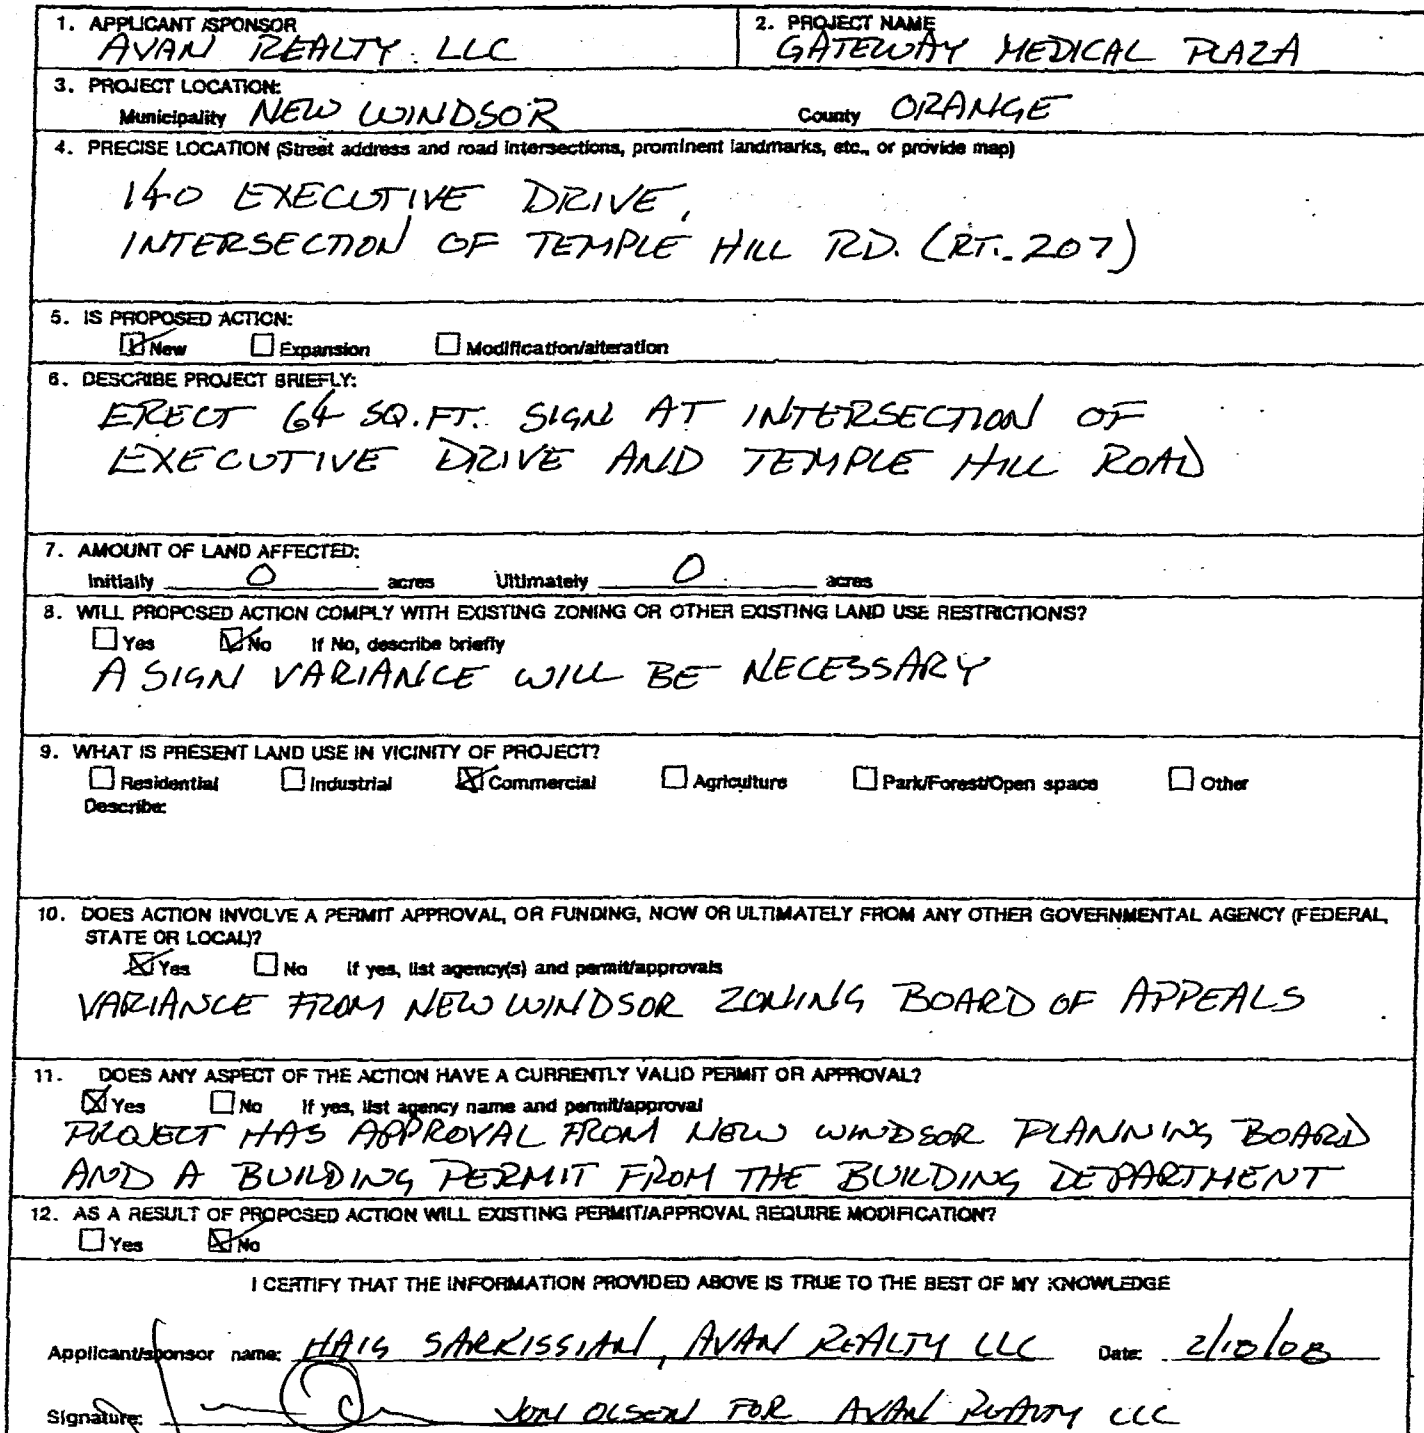 1. APPLICANT /SPONSOR
AVAN REALTY LLC
2. PROJECT NAME
GATEWAY MEDICAL PLAZA
3. PROJECT LOCATION:
Municipality NEW WINDSOR County ORANGE
4. PRECISE LOCATION (Street address and road intersections, prominent landmarks, etc., or provide map)
140 EXECUTIVE DRIVE,
INTERSECTION OF TEMPLE HILL RD. (RT. 207)
5. IS PROPOSED ACTION:
New Expansion Modification/alteration
6. DESCRIBE PROJECT BRIEFLY:
ERECT 64 SQ.FT. SIGN AT INTERSECTION OF
EXECUTIVE DRIVE AND TEMPLE HILL ROAD
7. AMOUNT OF LAND AFFECTED:
Initially 0 acres Ultimately 0 acres
8. WILL PROPOSED ACTION COMPLY WITH EXISTING ZONING OR OTHER EXISTING LAND USE RESTRICTIONS?
Yes No If No, describe briefly
A SIGN VARIANCE WILL BE NECESSARY
9. WHAT IS PRESENT LAND USE IN VICINITY OF PROJECT?
Residential Industrial Commercial Agriculture Park/Forest/Open space Other
Describe:
10. DOES ACTION INVOLVE A PERMIT APPROVAL, OR FUNDING, NOW OR ULTIMATELY FROM ANY OTHER GOVERNMENTAL AGENCY (FEDERAL,
STATE OR LOCAL)?
Yes No If yes, list agency(s) and permit/approvals
VARIANCE FROM NEW WINDSOR ZONING BOARD OF APPEALS
11. DOES ANY ASPECT OF THE ACTION HAVE A CURRENTLY VALID PERMIT OR APPROVAL?
Yes No If yes, list agency name and permit/approval
PROJECT HAS APPROVAL FROM NEW WINDSOR PLANNING BOARD
AND A BUILDING PERMIT FROM THE BUILDING DEPARTMENT
12. AS A RESULT OF PROPOSED ACTION WILL EXISTING PERMIT/APPROVAL REQUIRE MODIFICATION?
Yes No
I CERTIFY THAT THE INFORMATION PROVIDED ABOVE IS TRUE TO THE BEST OF MY KNOWLEDGE
Applicant/sponsor name: HAIG SARKISSIAN, AVAN REALTY LLC Date: 2/10/08
Signature: JON OLSEN FOR AVAN REALTY LLC